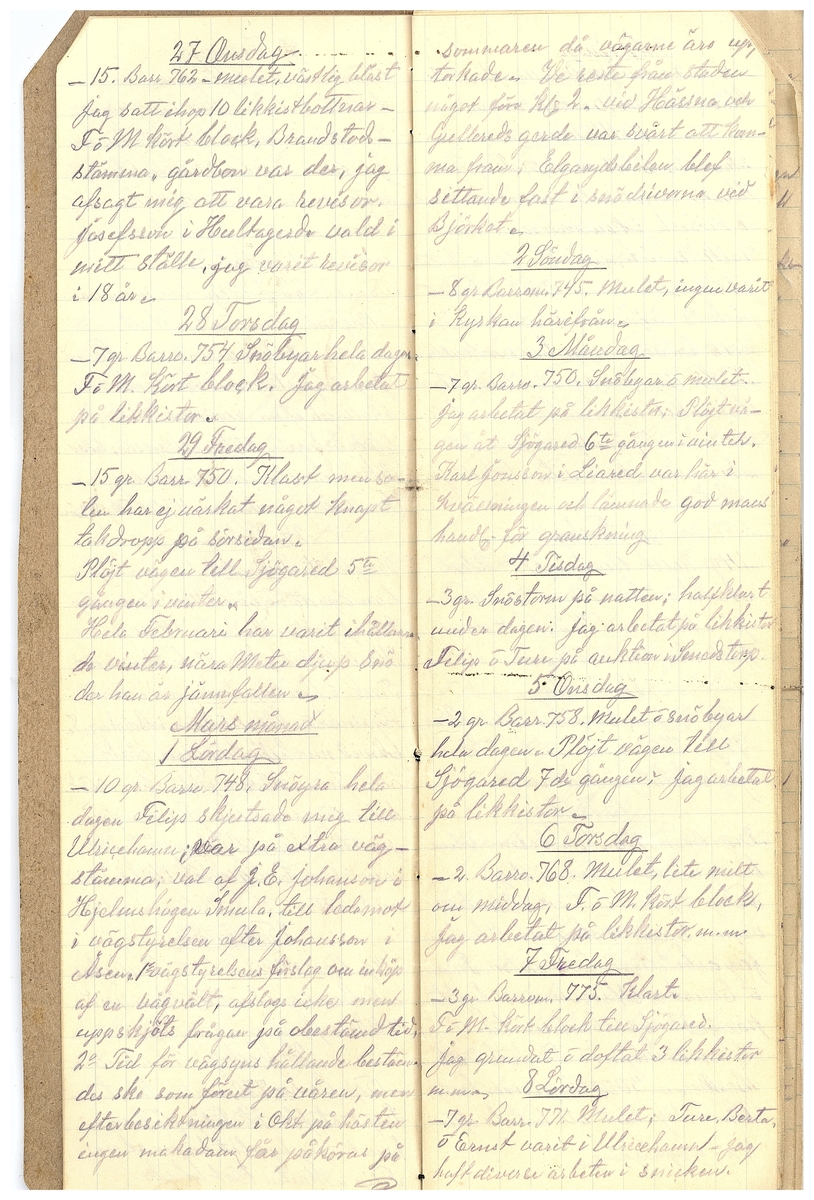 27 Onsdag
- 15. Barr 762 - mulet, västlig blåst
jag satt ihop 10 likkistbottnar -
F o M kört block, Brandstods-
stämma, gårdbon var der, jag
afsagt mig att vara revisor.
Josefsson i Hultagerde vald i
mitt ställe, jag varit revisor
i 18 år.
28 Torsdag
- 7 gr Barro. 754 Snöbyar hela dagen
F o M. kört block. Jag arbetat
på likkistor.
29 Fredag
- 15 gr Barr. 750. Klart men so-
len har ej värkat något knapt
takdropp på sörsidan.
Plöjt vägen till Sjögared 5te
gången i vinter.
Hela Februari har varit ihållan-
de vinter, nära Meter djup Snö
der han är jämnfallen.
Mars månad
1 Lördag
- 10 gr. Barro. 748. Snöyra hela
dagen Filip skjutsade mig till
Ulricehamn; var på extra väg-
stämma; val af J. E. Johanson i
Hjelmshögen Smula, till ledamot
i vägstyrelsen efter Johansson i
Åsen. 1o vägstyrelsens förslag om inköp
af en vägvält, afslogs icke men
uppskjöts frågan på obestämd tid,
2o Tid för vägsyns hållande bestäm-
des ske som förut på våren, men
efterbesiktningen i Okt. på hösten
ingen makadam får påköras på
sommaren då vägarne äro up-
torkade. Vi reste från staden
något före Kl. 2. vid Hässna och
Gullereds gerde var svårt att kom-
ma fram; Elgarydsbilen blef
sittande fast i snödrivorna vid
Björket.
2 Söndag
- 8 gr. Barrom. 745. Mulet, ingen varit
i Kyrkan härifrån.
3 Måndag
- 7 gr. Barro. 750. Snöbyar o mulet.
Jag arbetat på likkistor; Plöjt vä-
gen åt Sjögared 6te gången i vinter.
Karl Jonsson i Liared var här i
kväll och lämnade god mans
handl. för granskning
4 Tisdag
- 3 gr. Snöstorm på natten; halfklart
under dagen. Jag arbetat på likkistor
Filip o Ture på auktion i Smedstorp.
5 Onsdag
- 2 gr Barr. 758. Mulet o snöbyar
hela dagen. Plöjt vägen till
Sjögared 7de gången; jag arbetat
på likkistor.
6 Torsdag
- 2 Barro. 768. Mulet, lite milt
om middag, F. o M. kört block,
Jag arbetat på likkistor m.m.
7 Fredag
- 3 gr Barrom. 775. Klart.
F o M. kört block till Sjögared.
Jag grundat o doftat 3 likkistor
m.m.
8 Lördag
- 7 gr. Barr. 771. Mulet; Ture, Berta,
o Ernst varit i Ulricehamn - Jag
haft diverse arbeten i smicken.